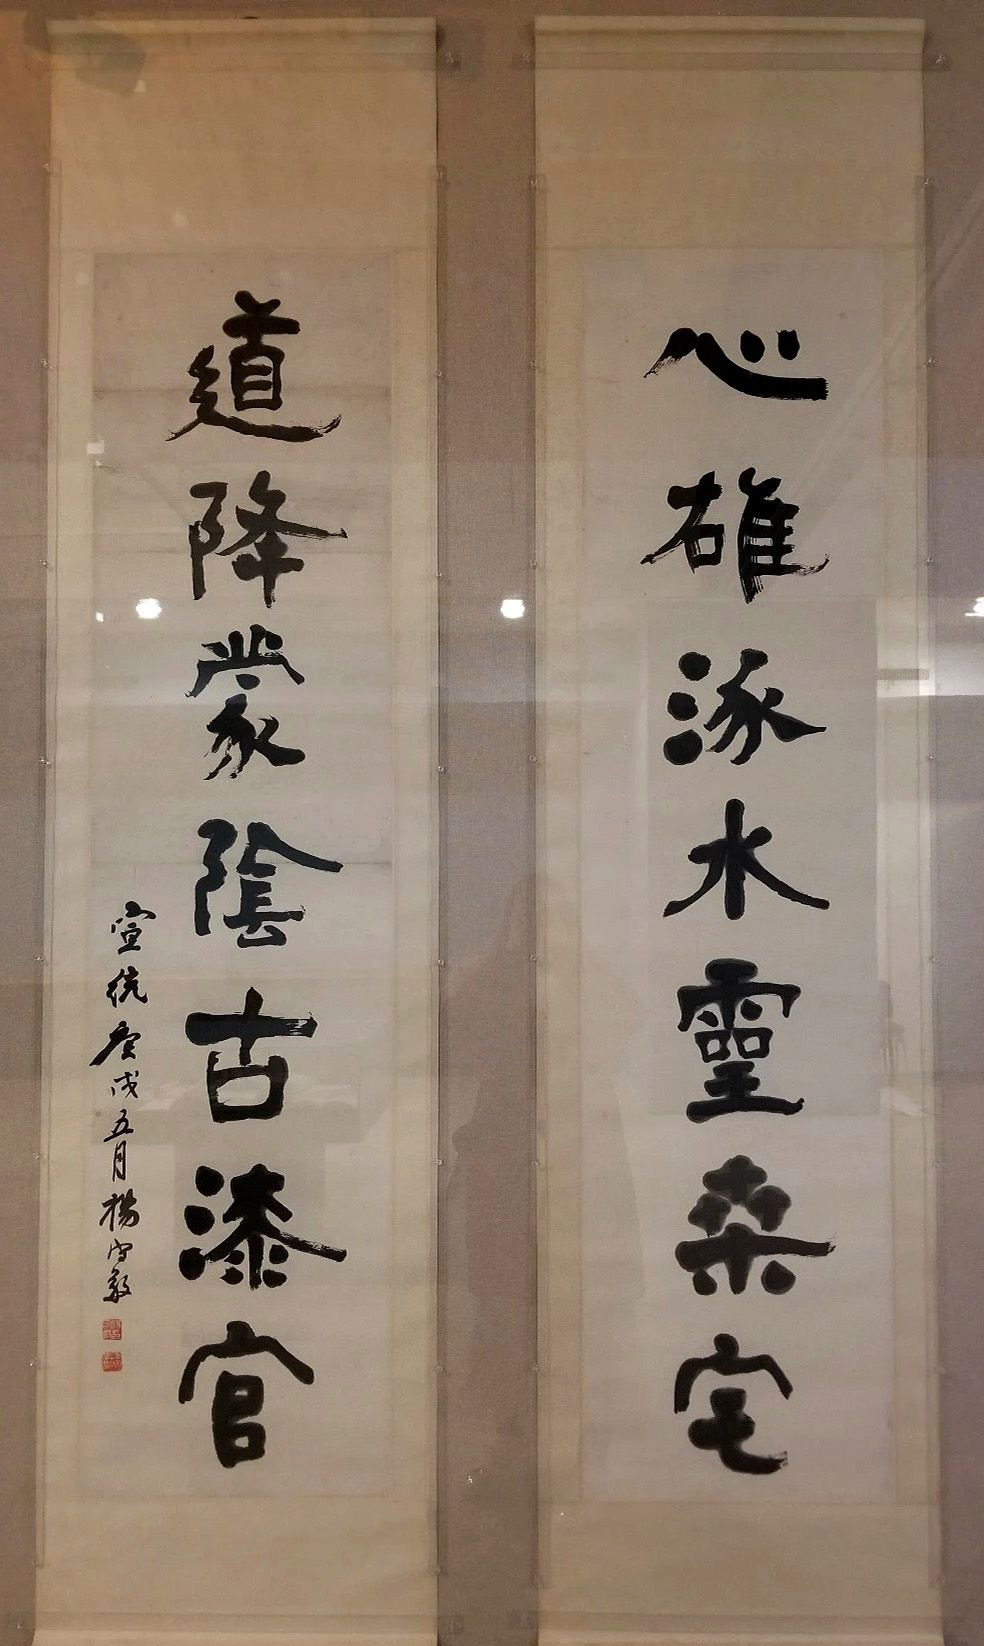 心雄涿水靈桑宅
道降蒙陰古漆官
宣統庚戌五月楊守敬